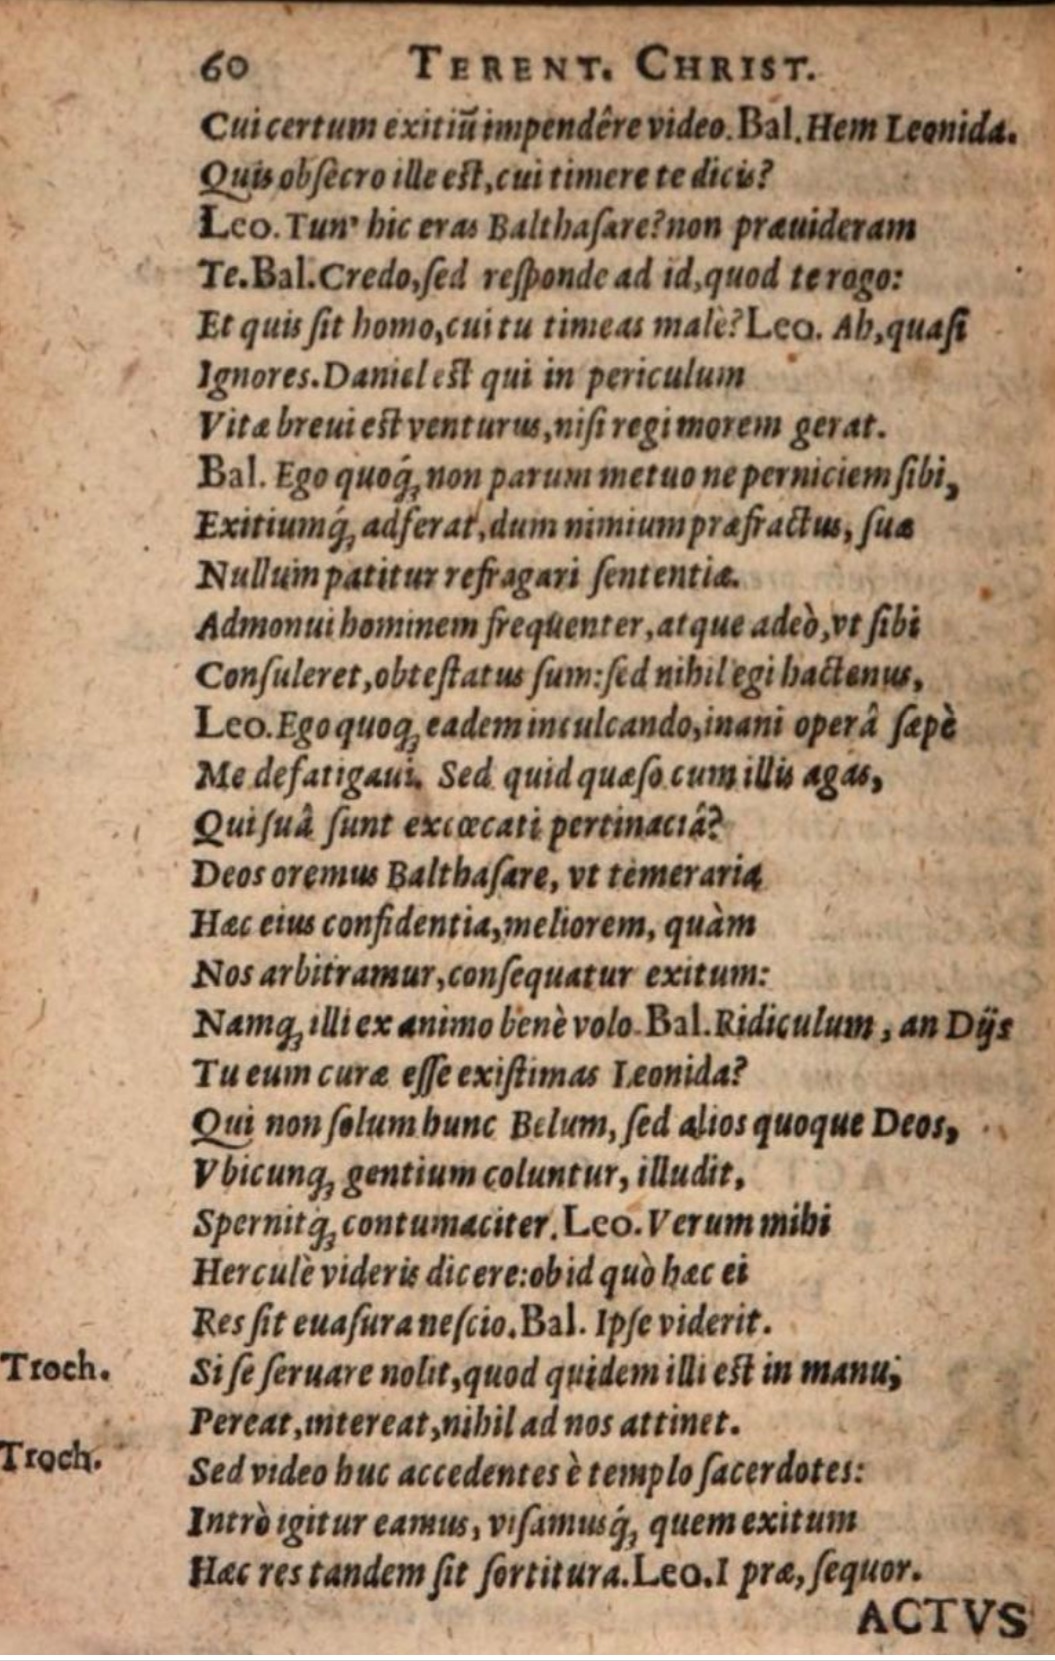 60 TERENT. CHRIST.
Cui certum exitiũ impendêre video. Bal. Hem Leonida.
Quis obsecro ille est, cui timere te dicis?
Leo. Tun' hic eras Balthasare? non præuideram
Te. Bal. Credo, sed responde ad id, quod te rogo:
Et quis sit homo, cui tu timeas malè? Leo. Ah, quasi
Ignores. Daniel est qui in periculum
Vitæ breui est venturus, nisi regi morem gerat.
Bal. Ego quoq́; non parum metuo ne perniciem sibi,
Exitiumq́; adferat, dum nimium præfractus, suæ
Nullum patitur refragari sententiæ.
Admonui hominem frequenter, atque adeò, vt sibi
Consuleret, obtestatus sum: sed nihil egi hactenus,
Leo. Ego quoq; eadem inculcando, inani operâ sæpè
Me defatigaui. Sed quid quæso cum illis agas,
Qui suâ sunt excœcati pertinaciâ?
Deos oremus Balthasare, vt temeraria
Hæc eius confidentia, meliorem, quàm
Nos arbitramur, consequatur exitum:
Namq; illi ex animo benè volo. Bal. Ridiculum, an Dijs
Tu eum curæ esse existimas Leonida?
Qui non solum hunc Belum, sed alios quoque Deos,
Vbicunq; gentium coluntur, illudit,
Spernitq́; contumaciter. Leo. Verum mihi
Herculè videris dicere: ob id quò hæc ei
Res sit euasura nescio. Bal. Ipse viderit.
Troch. Si se seruare nolit, quod quidem illi est in manu;
Pereat, intereat, nihil ad nos attinet.
Troch. Sed video huc accedentes è templo sacerdotes:
Intrò igitur eamus, visamusq́; quem exitum
Hæc res tandem sit sortitura. Leo. I præ, sequor.
ACTVS